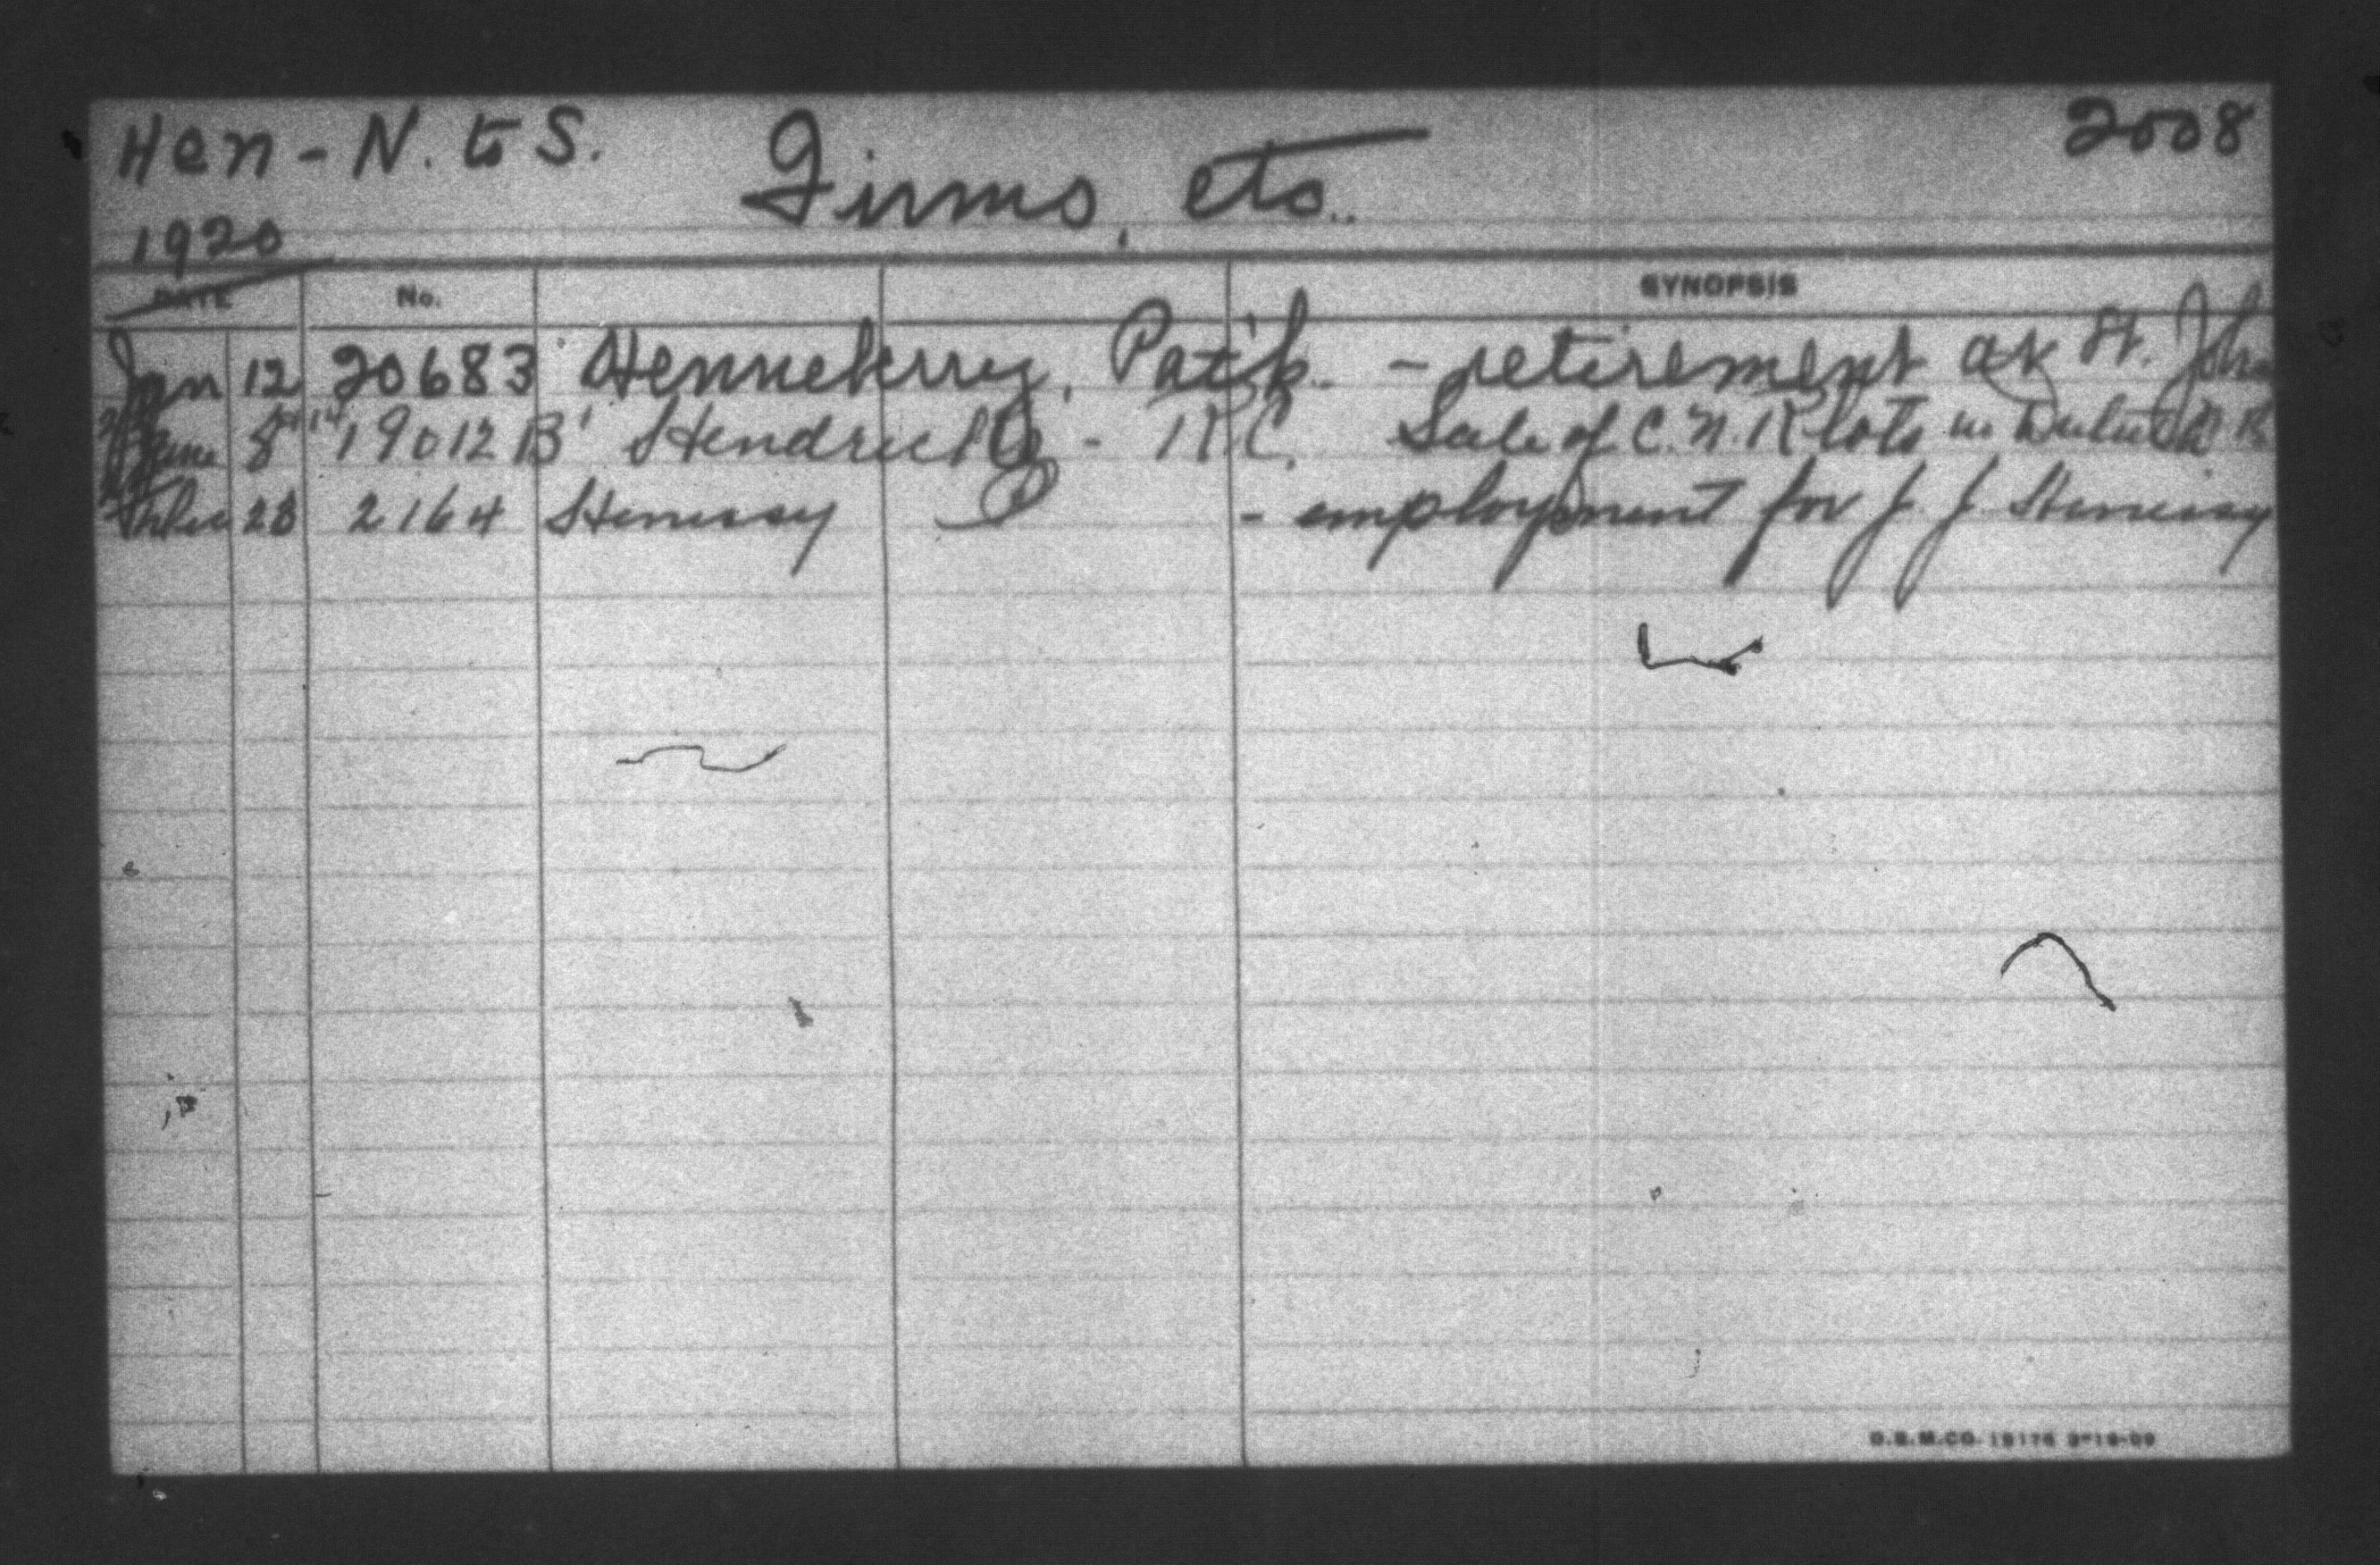 Hen - N. to S. Firms, etc. 2008
1920
DATE No. SYNOPSIS
Jan 12 20683 Henneberry, Pat'k. - retirement at St. John
June 8 19012 B Hendricks - R.C. Sale of C.N.R lots in
28 2164 Henessy - employment for J. J. Henessy